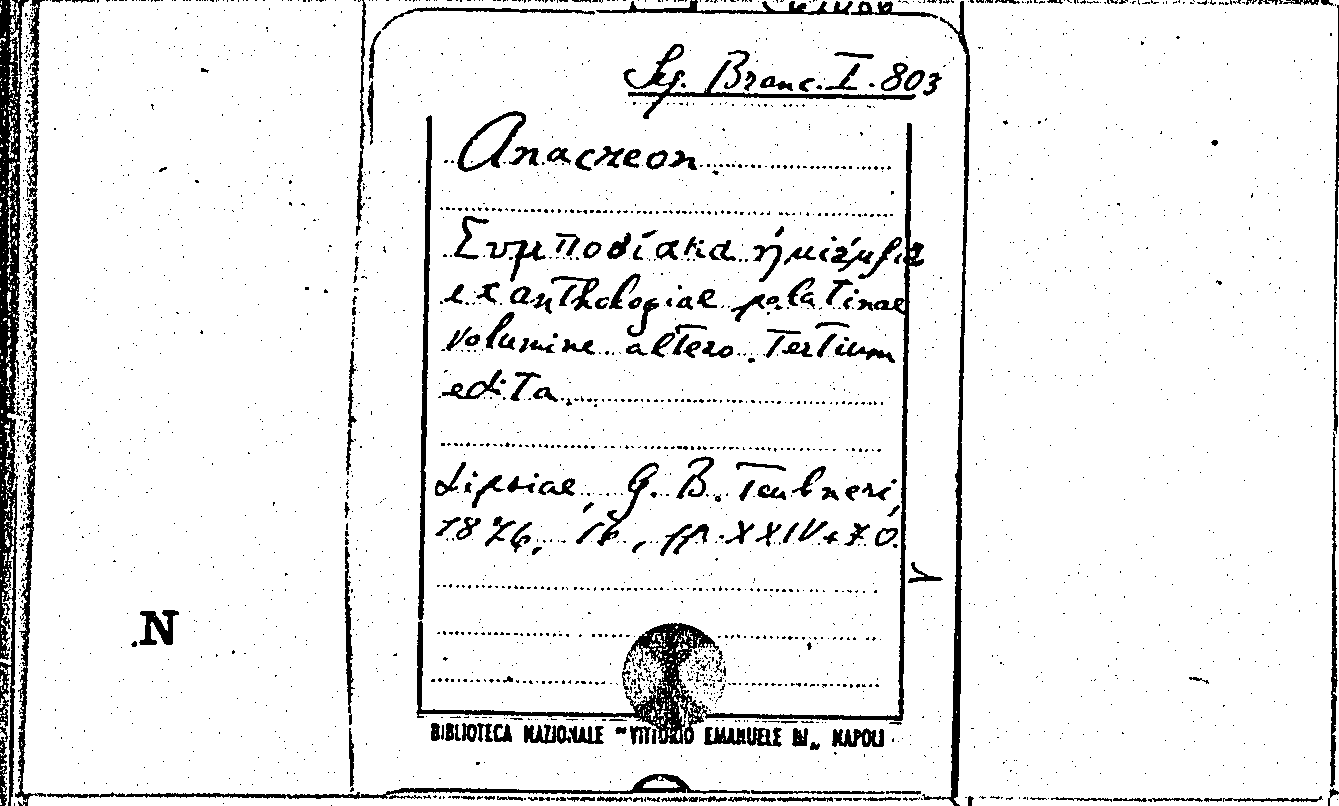 Sez. Branc. I. 803
Anacreon
Συμποσίακα ἡμιάμβια
ex anthologiae palatinae
volumine altero. Tertium
edita
Lipsiae, G. B. Teubneri,
1876, 16, pp. XXIV+70.
N
BIBLIOTECA NAZIONALE "VITTORIO EMANUELE III" NAPOLI